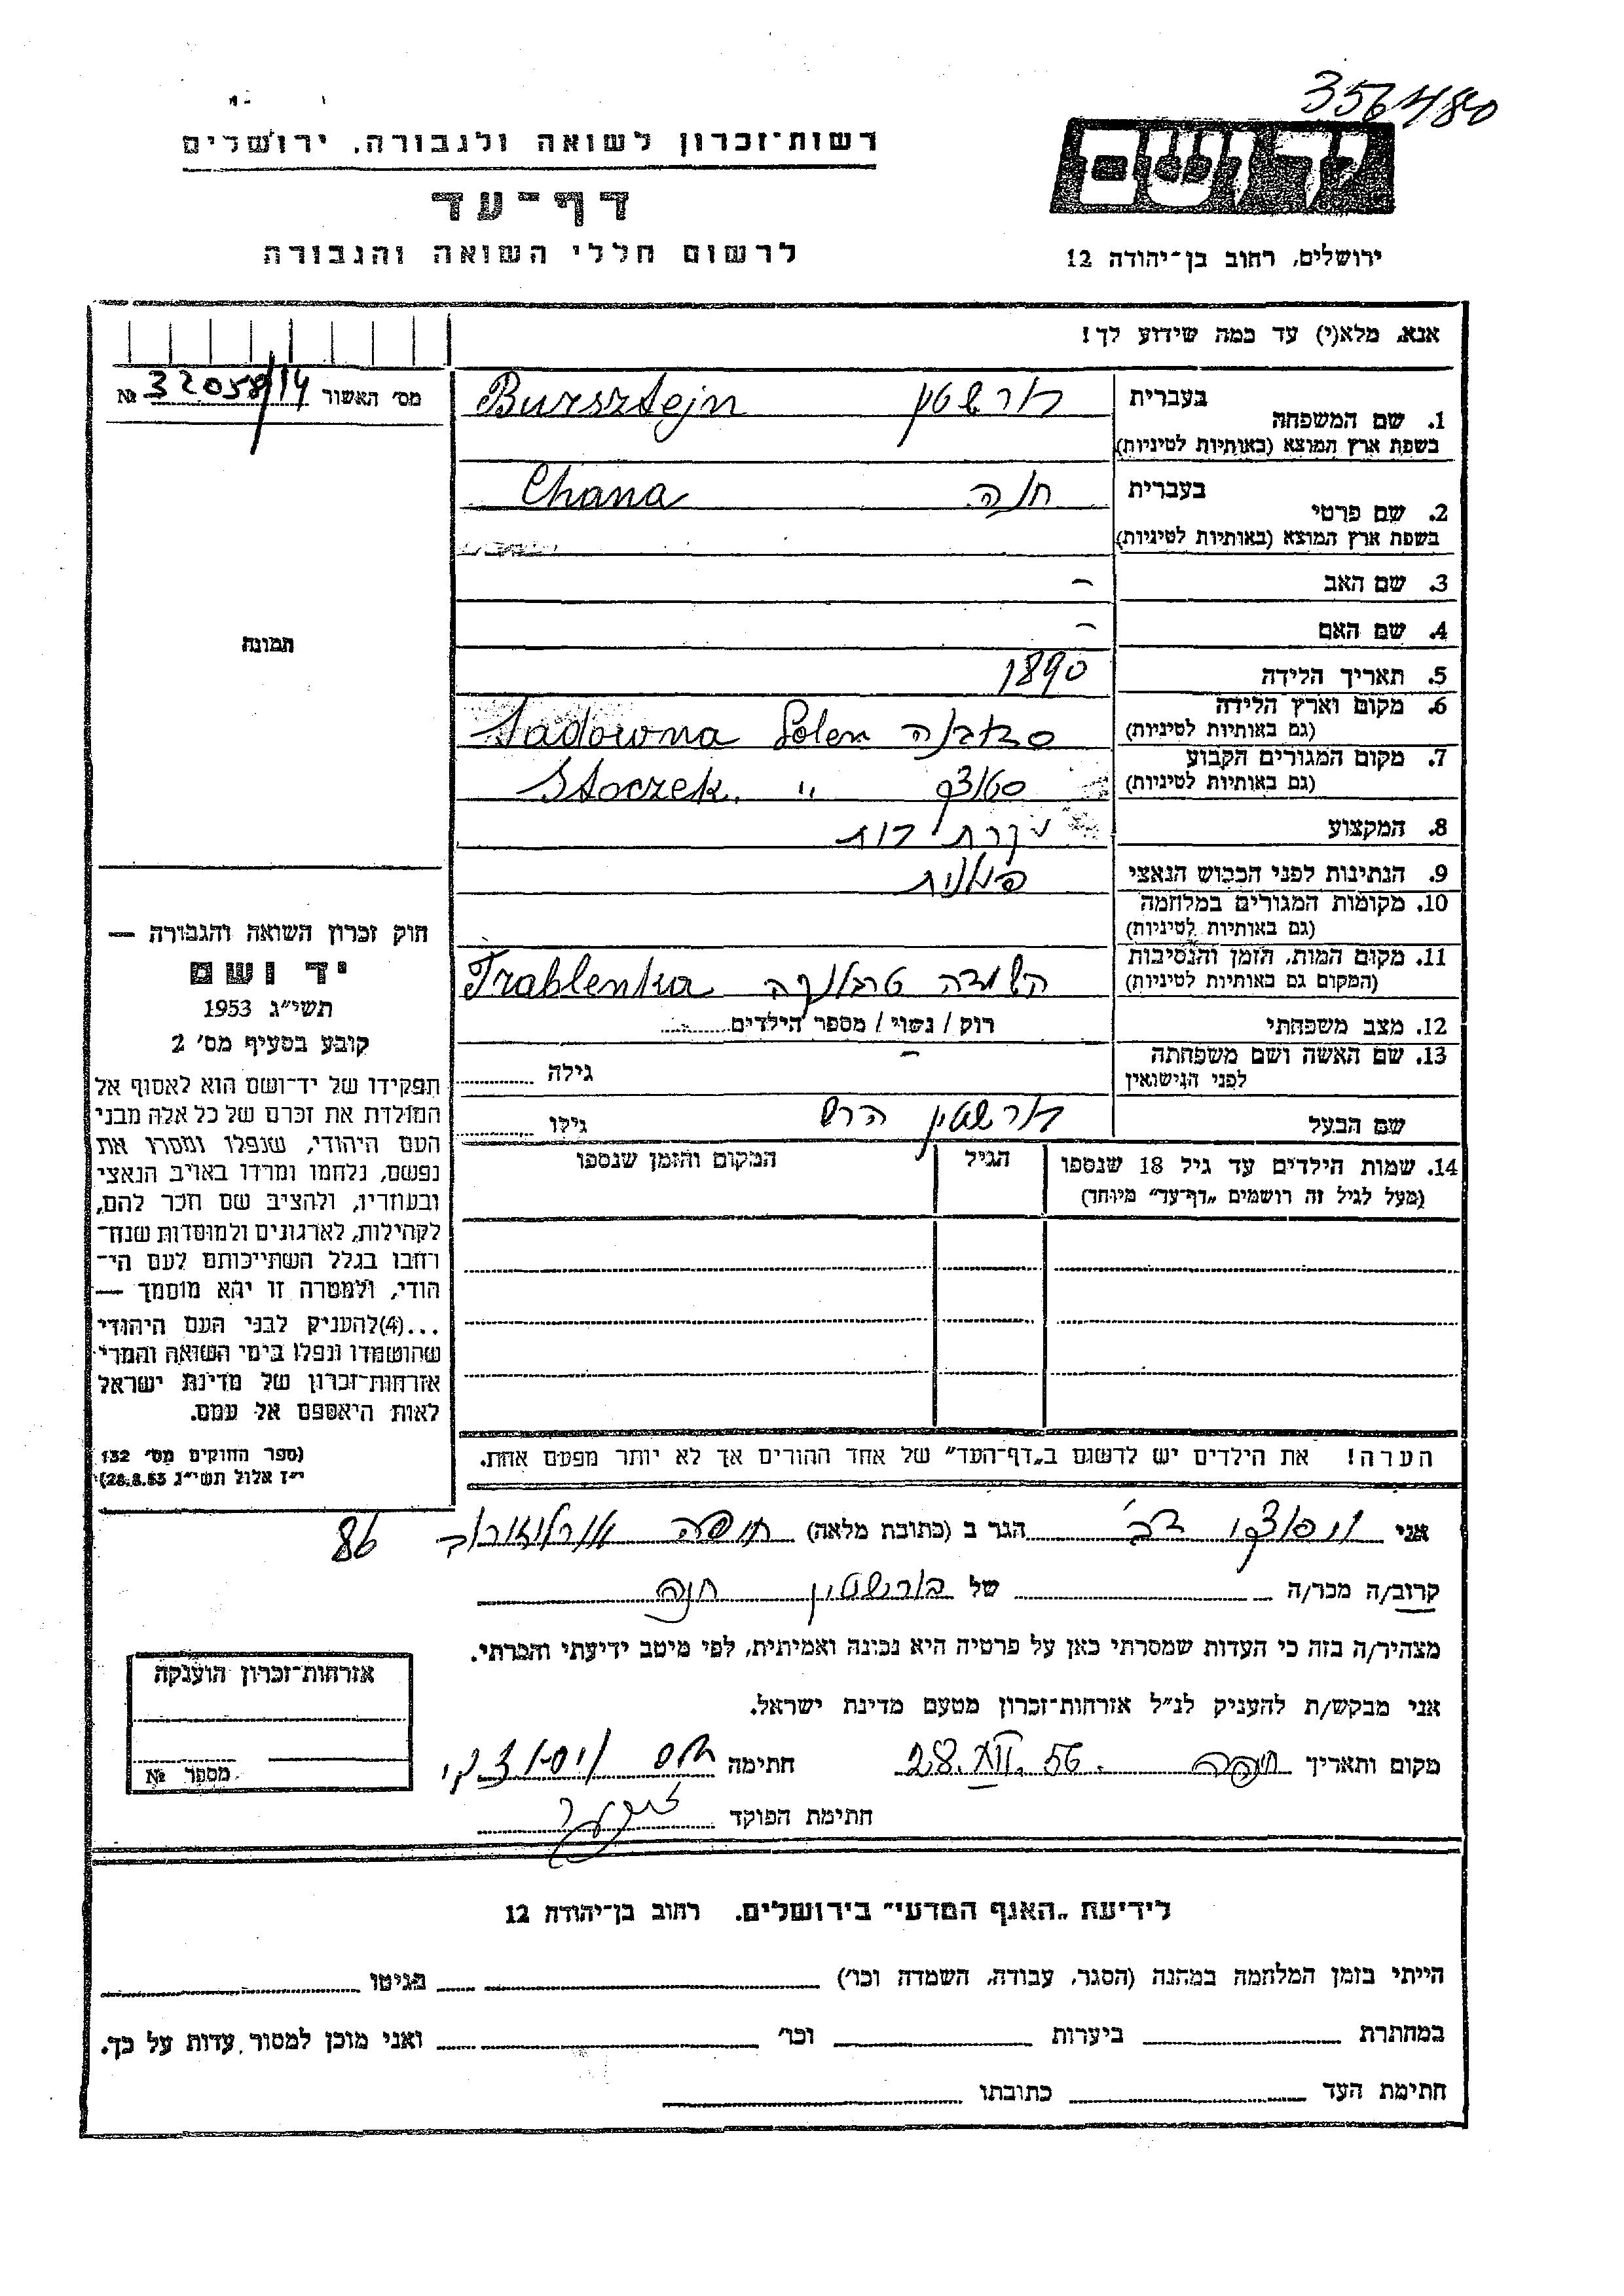 356480
רשות־זכרון לשואה ולגבורה, ירושלים
דף־עד
לרשום חללי השואה והגבורה
יד ושם
ירושלים, רחוב בן־יהודה 12
אנא, מלא(י) עד כמה שידוע לך!
מס' האשור 32058/14 №
תמונה
חוק זכרון השואה והגבורה —
יד ושם
תשי״ג 1953
קובע בסעיף מס' 2
תפקידו של יד־ושם הוא לאסוף אל
המולדת את זכרם של כל אלה מבני
העם היהודי, שנפלו ומסרו את
נפשם, נלחמו ומרדו באויב הנאצי
ובעוזריו, ולהציב שם וזכר להם,
לקהילות, לארגונים ולמוסדות שנח־
רבו בגלל השתייכותם לעם הי־
הודי, ולמטרה זו יהא מוסמך —
...(4)להעניק לבני העם היהודי
שהושמדו ונפלו בימי השואה והמרי
אזרחות־זכרון של מדינת ישראל
לאות היאספם אל עמם.
(ספר החוקים מס' 132
י״ז אלול תשי״ג 28.8.53)
1. שם המשפחה
בעברית
בשפת ארץ המוצא (באותיות לטיניות)
בורשטין Bursztejn
2. שם פרטי
בעברית
בשפת ארץ המוצא (באותיות לטיניות)
חנה Chana
3. שם האב –
4. שם האם –
5. תאריך הלידה 1890
6. מקום וארץ הלידה
(גם באותיות לטיניות)
סדובנה Sadowna Polen
7. מקום המגורים הקבוע
(גם באותיות לטיניות)
סטוצק Stoczek. "
8. המקצוע עקרת בית
9. הנתינות לפני הכבוש הנאצי פולנית
10. מקומות המגורים במלחמה
(גם באותיות לטיניות)
11. מקום המות, הזמן והנסיבות
(המקום גם באותיות לטיניות)
השמדה טרבלנקה Trablenka
12. מצב משפחתי רוק / נשוי / מספר הילדים
13. שם האשה ושם משפחתה
לפני הנישואין
– גילה
שם הבעל בורשטין הרש גילו
14. שמות הילדים עד גיל 18 שנספו הגיל המקום והזמן שנספו
(מעל לגיל זה רושמים „דף־עד״ מיוחד)
הערה! את הילדים יש לרשום ב„דף־העד״ של אחד ההורים אך לא יותר מפעם אחת.
אני ויסוצקי דב הגר ב (כתובת מלאה) חיפה ארלוזורוב 86
קרוב/ה מכר/ה של בורשטין חנה
מצהיר/ה בזה כי העדות שמסרתי כאן על פרטיה היא נכונה ואמיתית, לפי מיטב ידיעתי והכרתי.
אני מבקש/ת להעניק לנ״ל אזרחות־זכרון מטעם מדינת ישראל.
מקום ותאריך חיפה 28.XII.56. חתימה ויסוצקי
חתימת הפוקד
אזרחות־זכרון הוענקה
מספר №
לידיעת „האגף המדעי״ בירושלים. רחוב בן־יהודה 12
הייתי בזמן המלחמה במחנה (הסגר, עבודה, השמדה וכו') בגיטו
במחתרת ביערות וכו' ואני מוכן למסור עדות על כך.
חתימת העד כתובתו